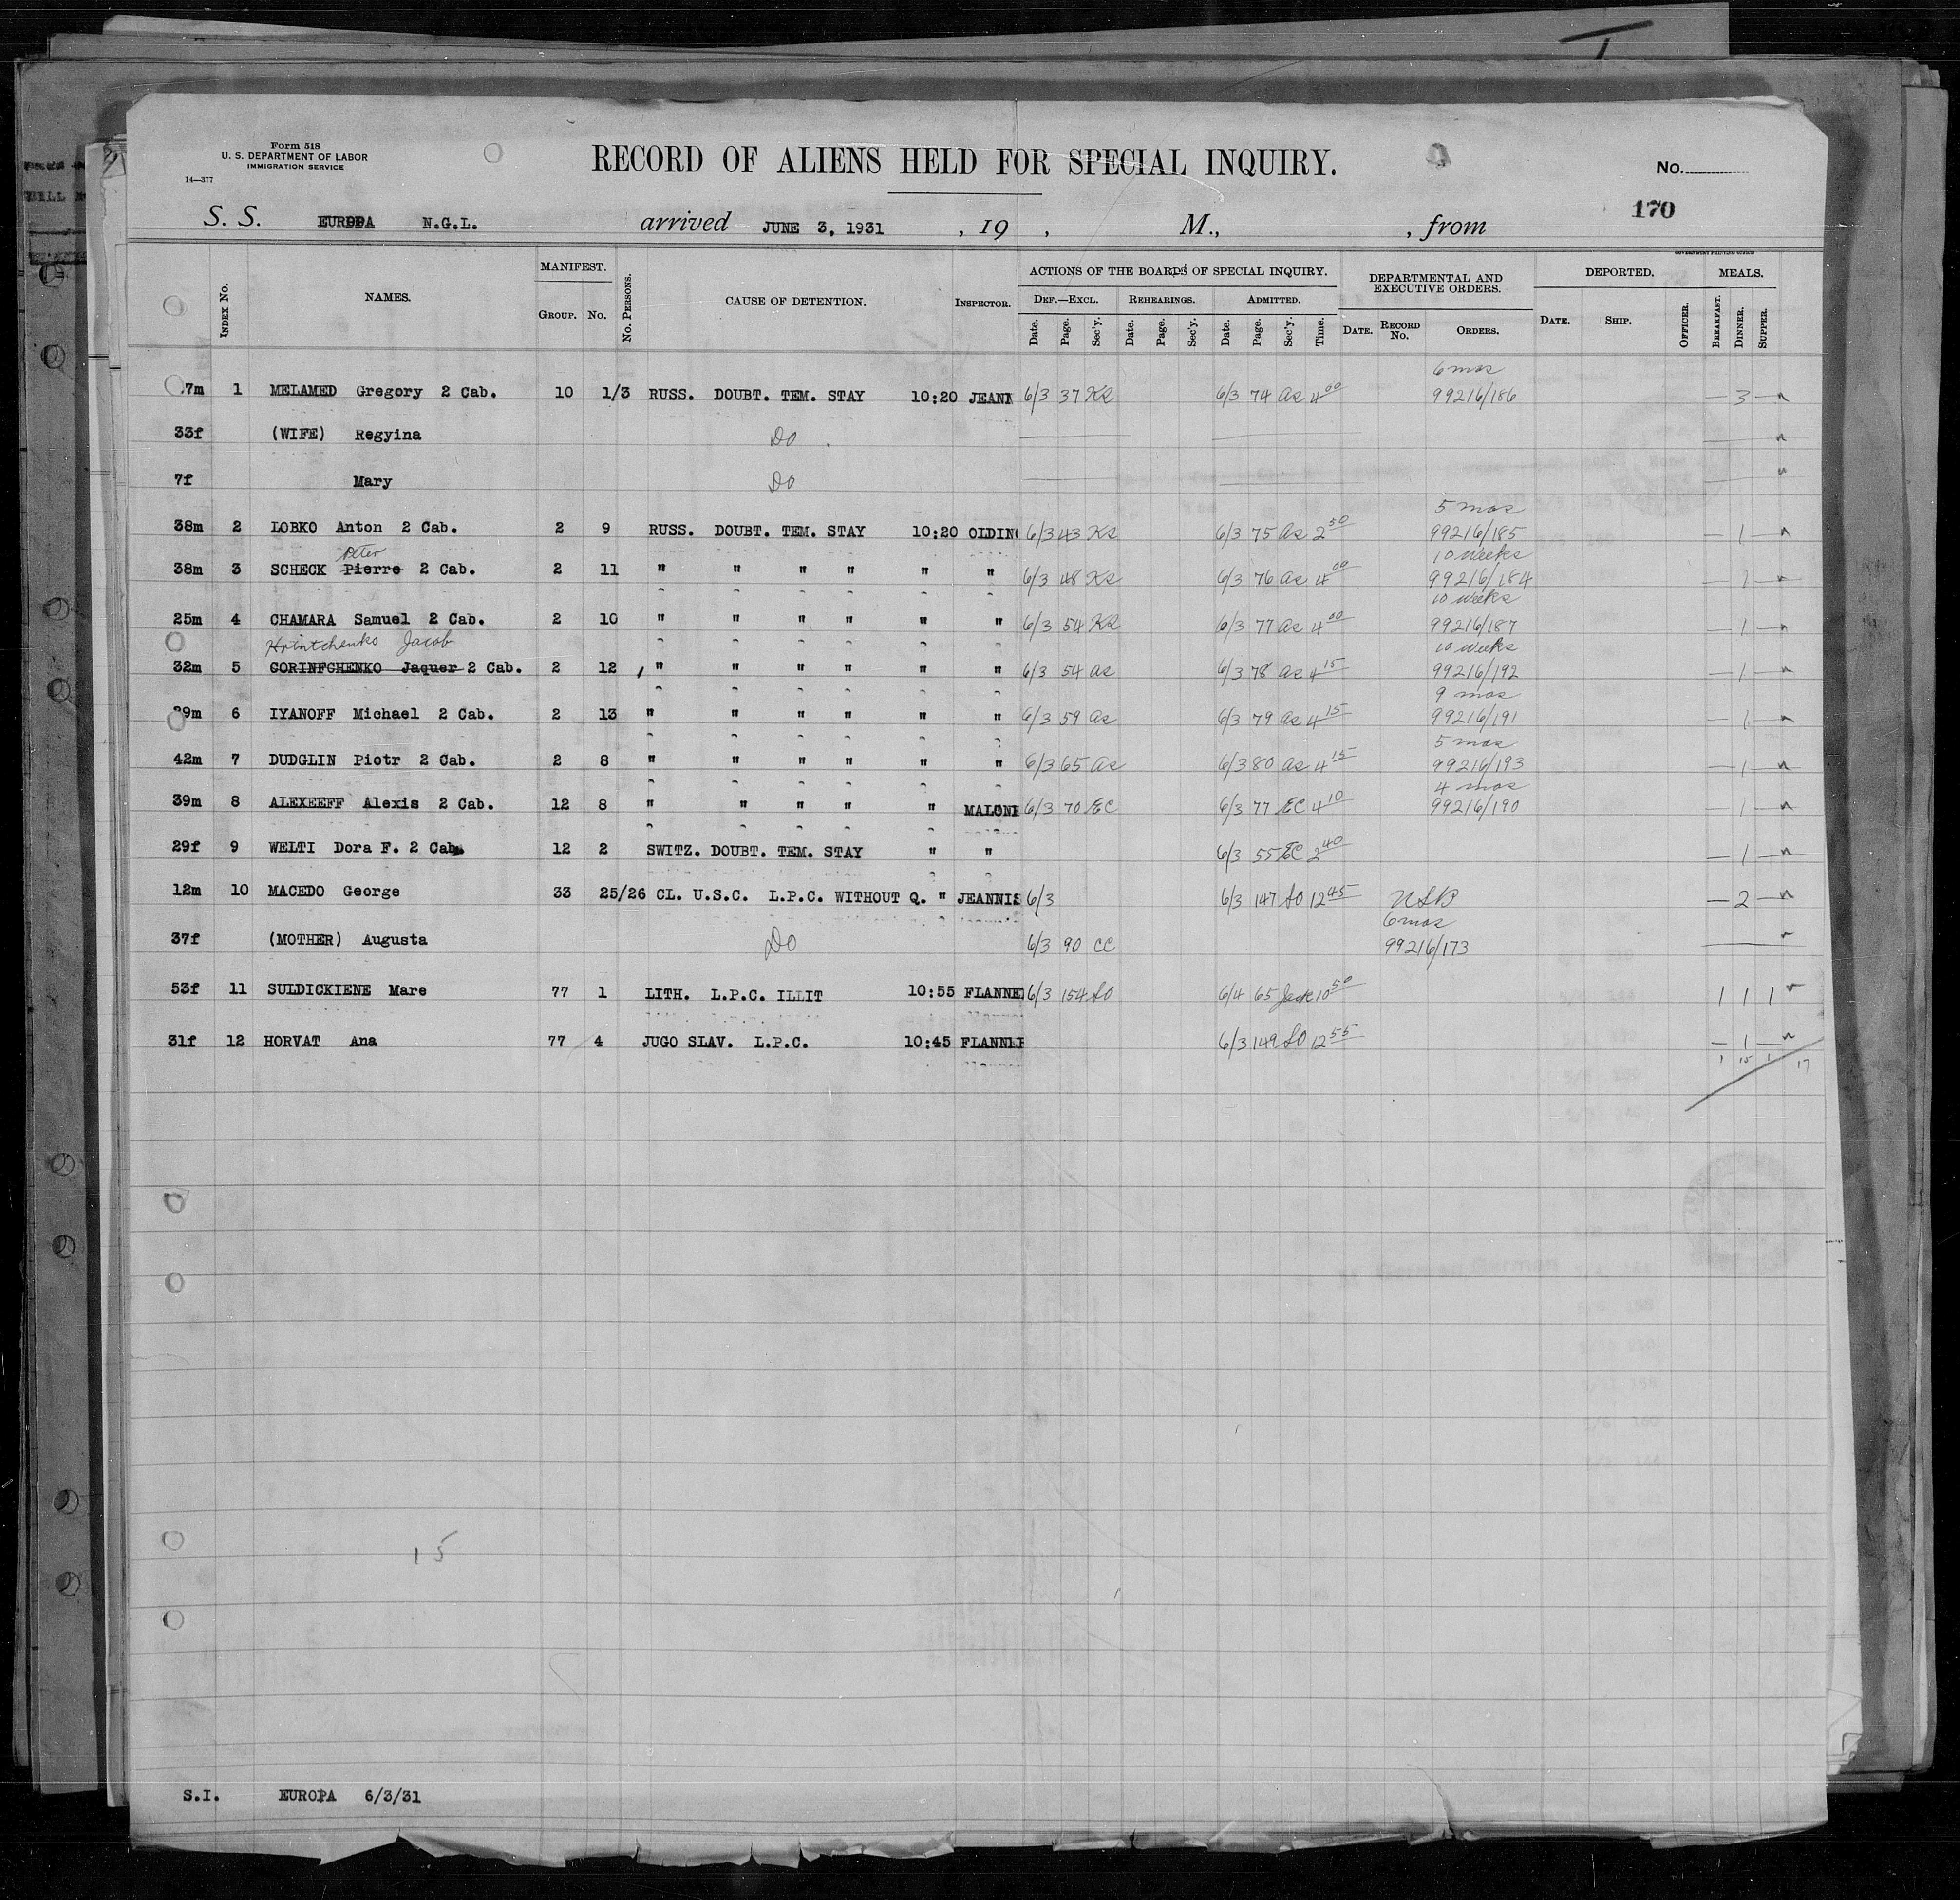 Form 518
U. S. DEPARTMENT OF LABOR
IMMIGRATION SERVICE
14—377
RECORD OF ALIENS HELD FOR SPECIAL INQUIRY.
No.
170
S. S. EUROPA N.G.L. arrived JUNE 3, 1931 , 19 , M., , from
GOVERNMENT PRINTING OFFICE
INDEX No. NAMES. MANIFEST. GROUP. No. No. PERSONS. CAUSE OF DETENTION. INSPECTOR. ACTIONS OF THE BOARDS OF SPECIAL INQUIRY. DEPARTMENTAL AND EXECUTIVE ORDERS. DEPORTED. MEALS.
DEF.—EXCL. REHEARINGS. ADMITTED.
Date. Page. Sec'y. Date. Page. Sec'y. Date. Page. Sec'y. Time. DATE. RECORD No. ORDERS. DATE. SHIP. OFFICER. BREAKFAST. DINNER. SUPPER.
6 mos
7m 1 MELAMED Gregory 2 Cab. 10 1/3 RUSS. DOUBT. TEM. STAY 10:20 JEANN 6/3 37 KS 6/3 74 as 4 00 99216/186 — 3 —
33f (WIFE) Regyina Do
7f Mary Do
5 mos
38m 2 LOBKO Anton 2 Cab. 2 9 RUSS. DOUBT. TEM. STAY 10:20 OLDING 6/3 43 KS 6/3 75 as 2 50 99216/185 — 1 —
Peter 10 weeks
38m 3 SCHECK Pierre 2 Cab. 2 11 " " " " " " 6/3 48 KS 6/3 76 as 4 00 99216/184 — 1 —
10 weeks
25m 4 CHAMARA Samuel 2 Cab. 2 10 " " " " " " 6/3 54 KS 6/3 77 as 4 00 99216/187 — 1 —
Hrintchenko Jacob 10 weeks
32m 5 GORINFCHENKO Jaquer 2 Cab. 2 12 " " " " " " 6/3 54 as 6/3 78 as 4 15 99216/192 — 1 —
9 mos
29m 6 IYANOFF Michael 2 Cab. 2 13 " " " " " " 6/3 59 as 6/3 79 as 4 15 99216/191 — 1 —
5 mos
42m 7 DUDGLIN Piotr 2 Cab. 2 8 " " " " " " 6/3 65 as 6/3 80 as 4 15 99216/193 — 1 —
4 mos
39m 8 ALEXEEFF Alexis 2 Cab. 12 8 " " " " " MALONE 6/3 70 EC 6/3 77 EC 4 10 99216/190 — 1 —
29f 9 WELTI Dora F. 2 Cab. 12 2 SWITZ. DOUBT. TEM. STAY " " 6/3 55 EC 2 40 — 1 —
12m 10 MACEDO George 33 25/26 CL. U.S.C. L.P.C. WITHOUT Q. " JEANNIS 6/3 6/3 147 SO 12 45 USB — 2 —
6 mos
37f (MOTHER) Augusta Do 6/3 90 CC 99216/173
53f 11 SULDICKIENE Mare 77 1 LITH. L.P.C. ILLIT 10:55 FLANNE 6/3 154 SO 6/4 65 10 50 1 1 1
31f 12 HORVAT Ana 77 4 JUGO SLAV. L.P.C. 10:45 FLANNE 6/3 149 SO 12 55 — 1 —
1 15 1 17
15
S.I. EUROPA 6/3/31